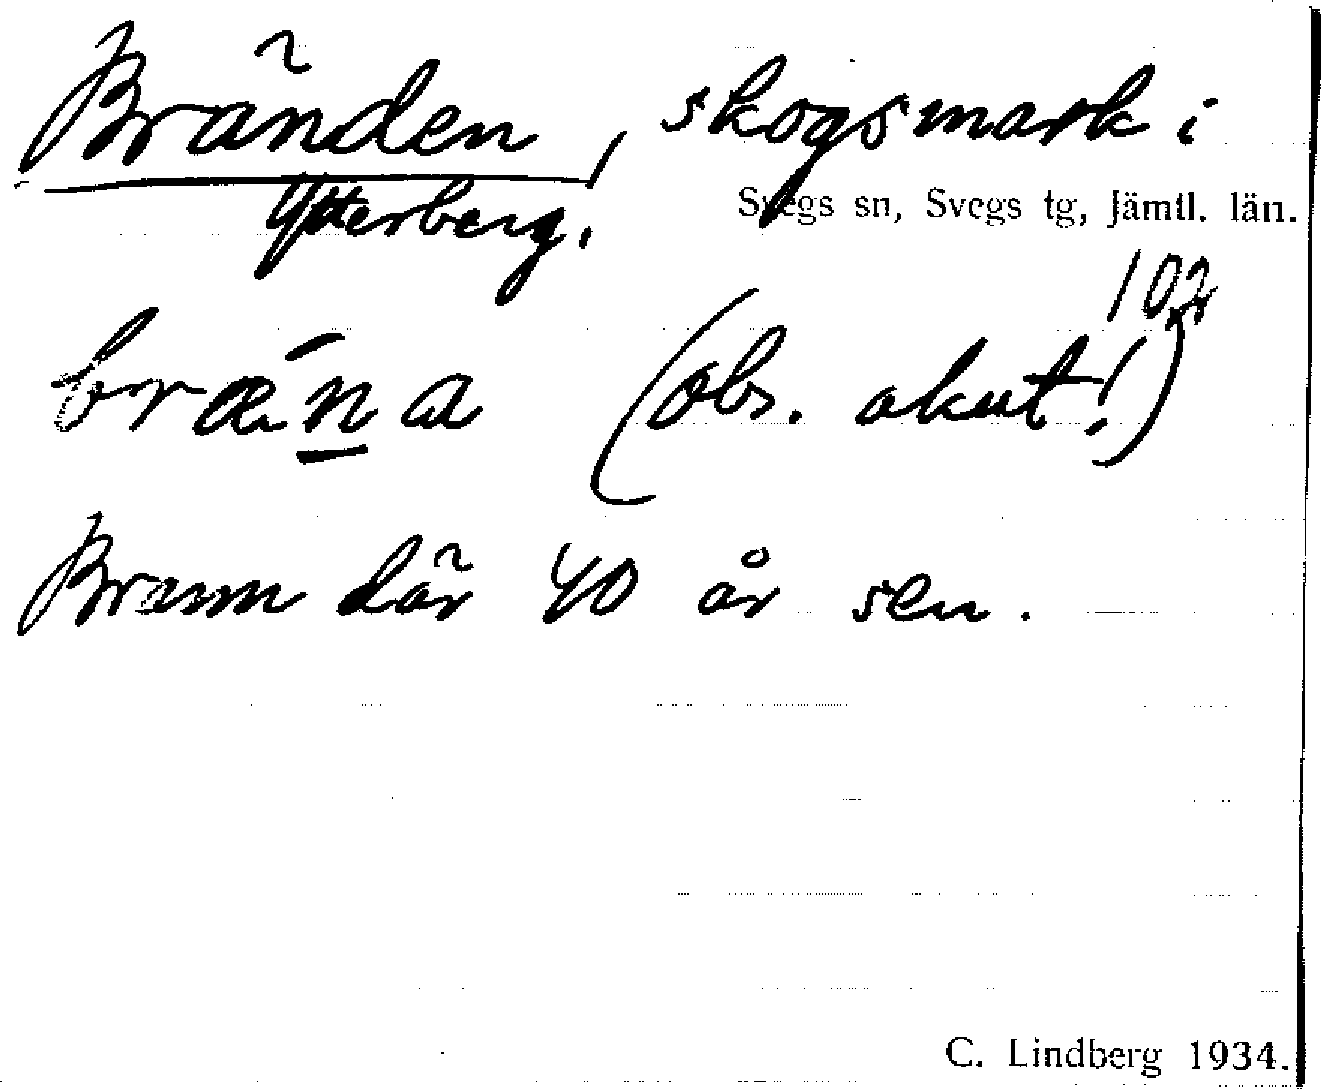 Bränden, skogsmark i
Ytterberg.
Svegs sn, Svegs tg, Jämtl. län.
102
brǽn̲a (obs. akut!)
Brann där 40 år sen.
C. Lindberg 1934.